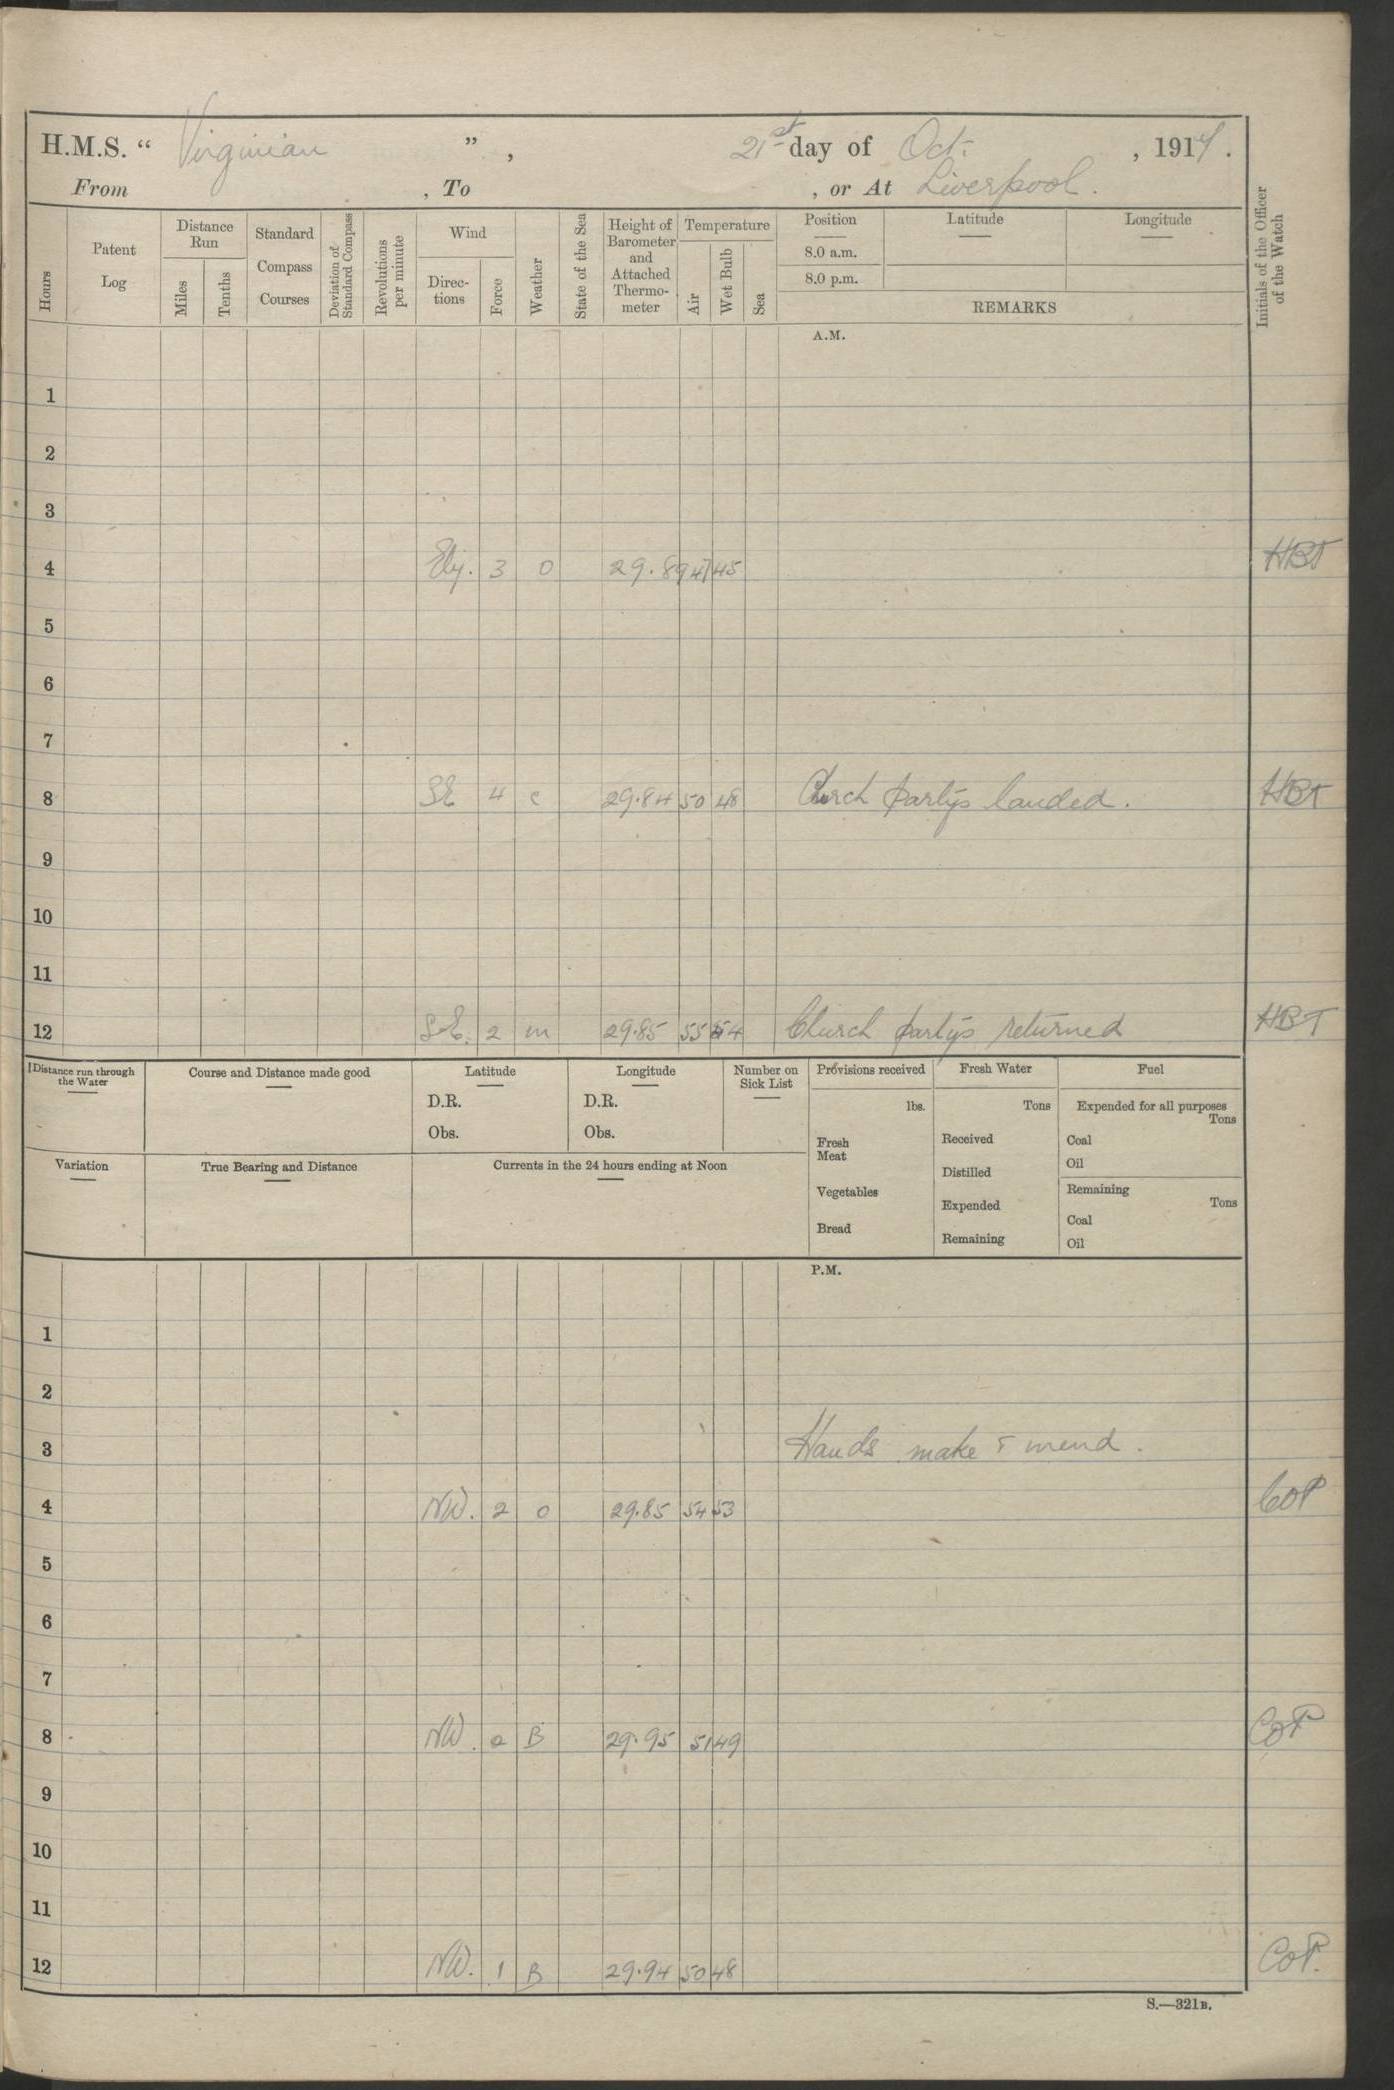 H.M.S. “ Virginian ” , 21st day of Oct. , 1917.
From , To , or At Liverpool.
Hours
Patent Log
Distance Run
Miles
Tenths
Standard Compass Courses
Deviation of Standard Compass
Revolutions per minute
Wind
Directions
Force
Weather
State of the Sea
Height of Barometer and Attached Thermometer
Temperature
Air
Wet Bulb
Sea
Position
8.0 a.m.
8.0 p.m.
Latitude
Longitude
REMARKS
Initials of the Officer of the Watch
A.M.
1
2
3
4 Ely. 3 O 29.89 47 45 HBT
5
6
7
8 SE 4 c 29.84 50 48 Church partys landed. HBT
9
10
11
12 S.E. 2 m 29.85 55 54 Church partys returned HBT
Distance run through the Water
Course and Distance made good
Latitude
D.R.
Obs.
Longitude
D.R.
Obs.
Number on Sick List
Provisions received
lbs.
Fresh Meat
Vegetables
Bread
Fresh Water
Tons
Received
Distilled
Expended
Remaining
Fuel
Expended for all purposes
Tons
Coal
Oil
Remaining
Tons
Coal
Oil
Variation
True Bearing and Distance
Currents in the 24 hours ending at Noon
P.M.
1
2
3 Hands make & mend.
4 NW. 2 O 29.85 54 53 COP
5
6
7
8 NW. 2 B 29.95 51 49 COP
9
10
11
12 NW. 1 B 29.94 50 48 COP.
S.—321B.